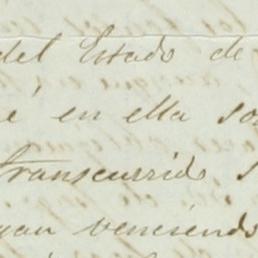 del Estado de
é en ella so
transcurrido s
yan venciendo